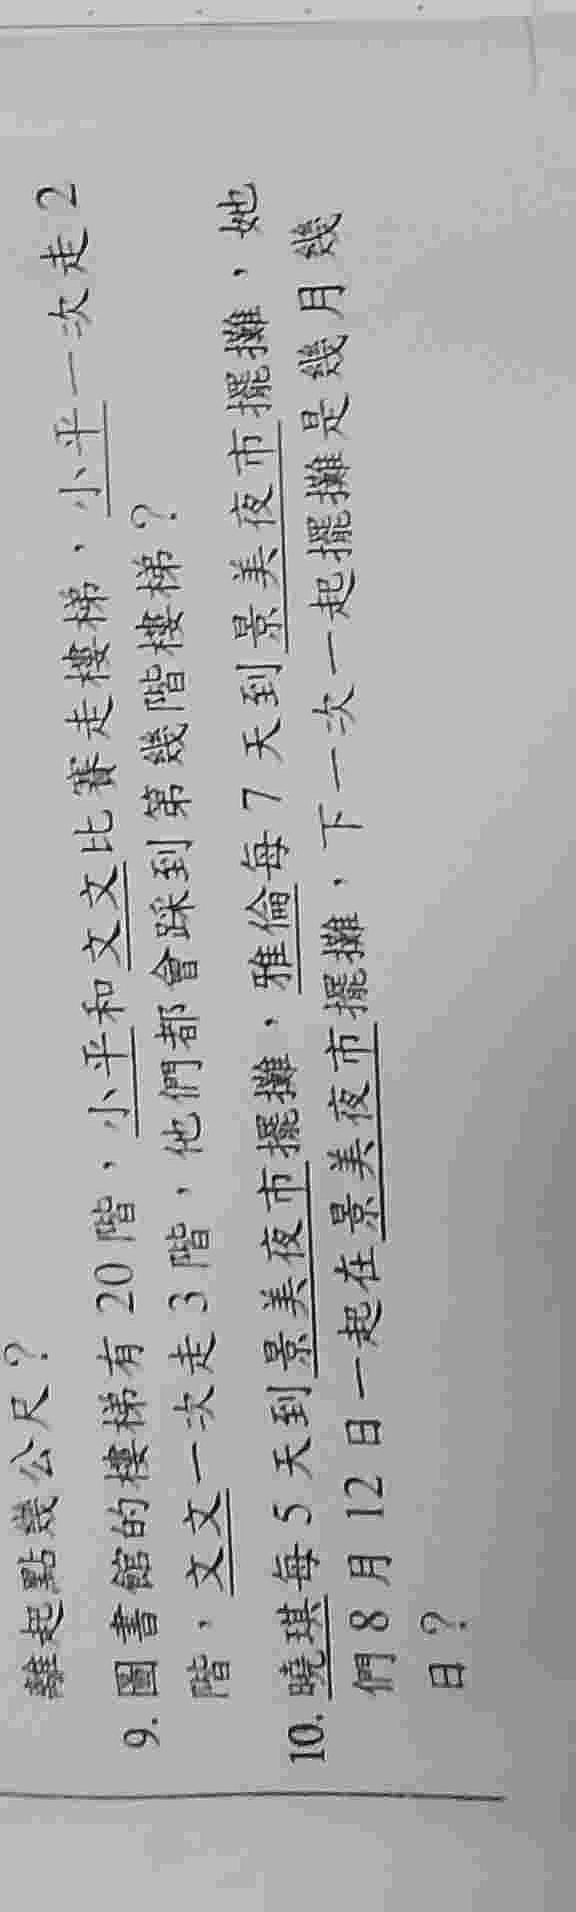 離起點幾公尺？
9. 圖書館的樓梯有 20 階，小平和文文比賽走樓梯，小平一次走 2
階，文文一次走 3 階，他們都會踩到第幾階樓梯？
10. 曉琪每 5 天到景美夜市擺攤，雅倫每 7 天到景美夜市擺攤，她
們 8 月 12 日一起在景美夜市擺攤，下一次一起擺攤是幾月幾
日？